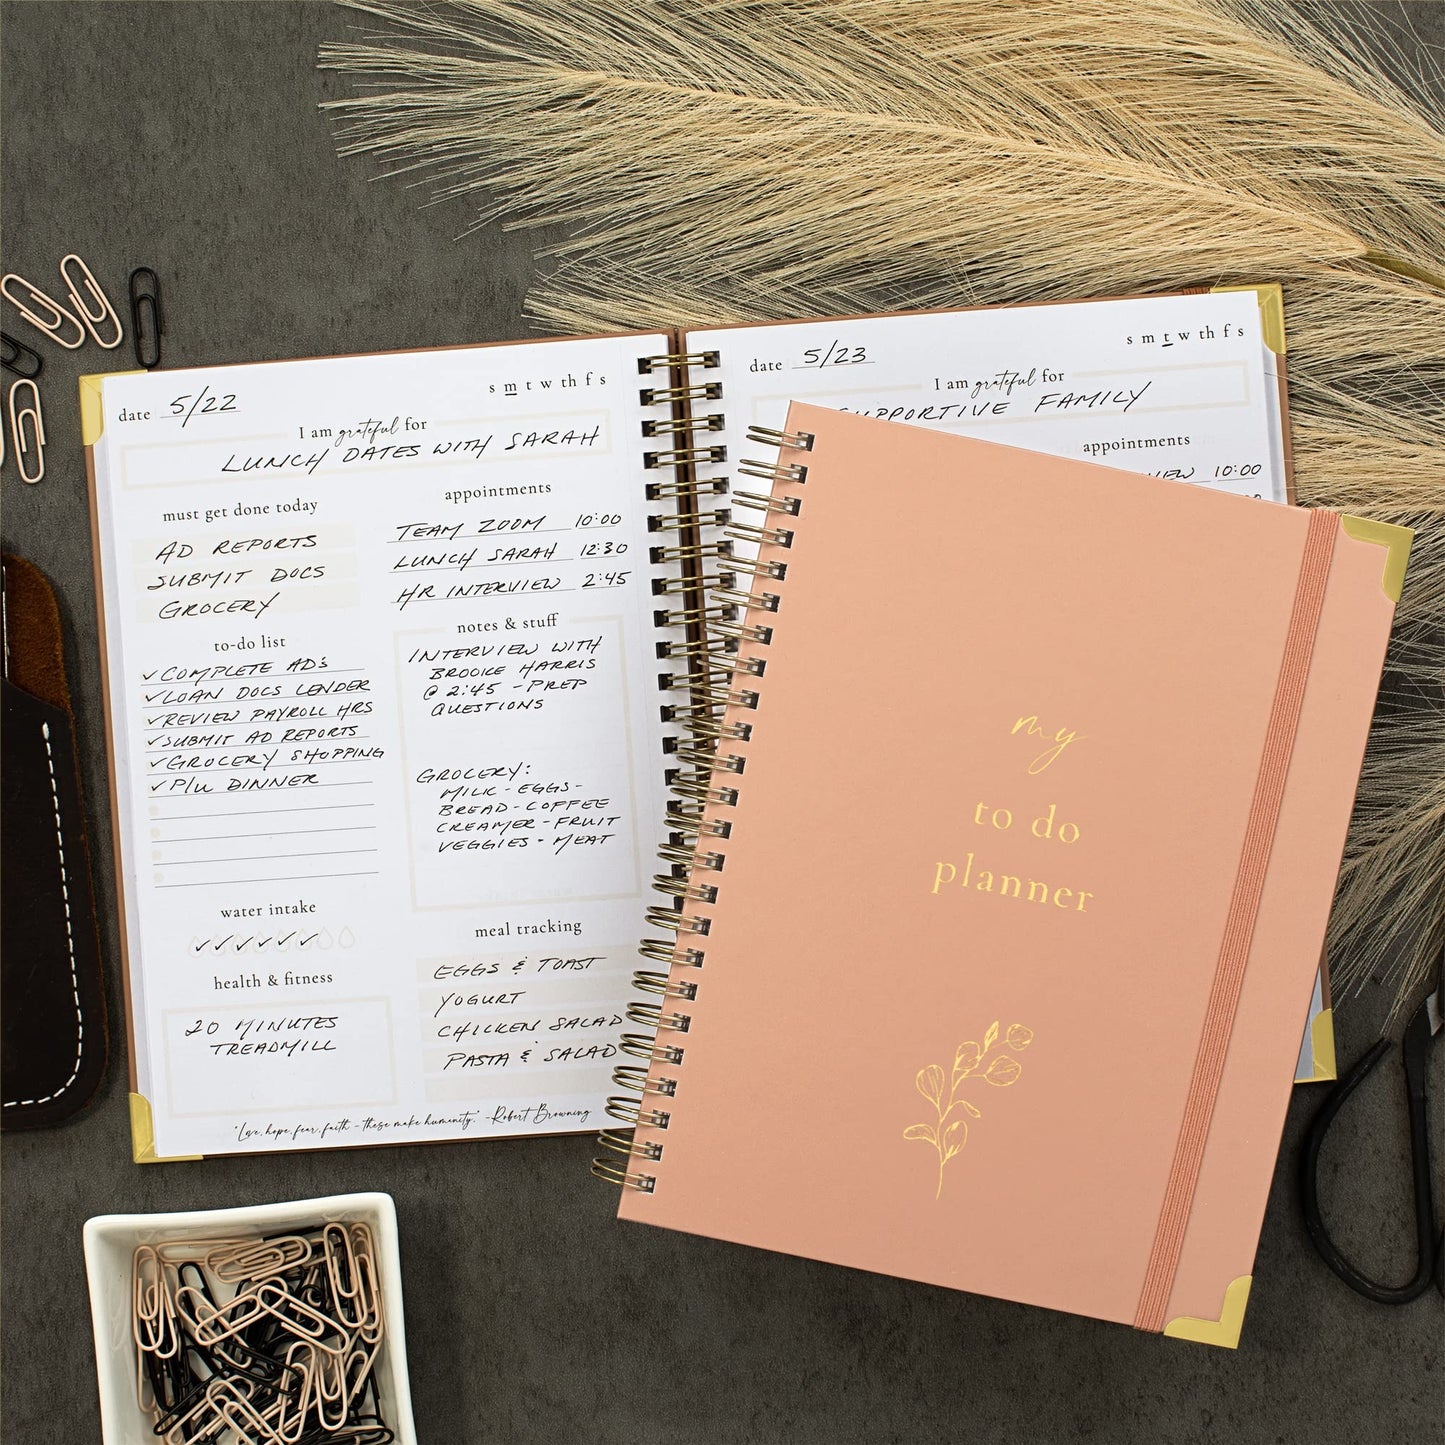 date 5/22
s m t w th f s
I am grateful for
LUNCH DATES WITH SARAH
must get done today
AD REPORTS
SUBMIT DOCS
GROCERY
to-do list
✓COMPLETE AD's
✓LOAN DOCS LENDER
✓REVIEW PAYROLL HRS
✓SUBMIT AD REPORTS
✓GROCERY SHOPPING
✓P/U DINNER
water intake
✓✓✓✓✓✓
health & fitness
20 MINUTES
TREADMILL
appointments
TEAM ZOOM 10:00
LUNCH SARAH 12:30
HR INTERVIEW 2:45
notes & stuff
INTERVIEW WITH
BROOKE HARRIS
@ 2:45 - PREP
QUESTIONS
GROCERY:
MILK - EGGS -
BREAD - COFFEE
CREAMER - FRUIT
VEGGIES - MEAT
meal tracking
EGGS & TOAST
YOGURT
CHICKEN SALAD
PASTA & SALAD
"Love, hope, fear, faith - these make humanity." -Robert Browning
date 5/23
s m t w th f s
I am grateful for
SUPPORTIVE FAMILY
appointments
10:00
my
to do
planner